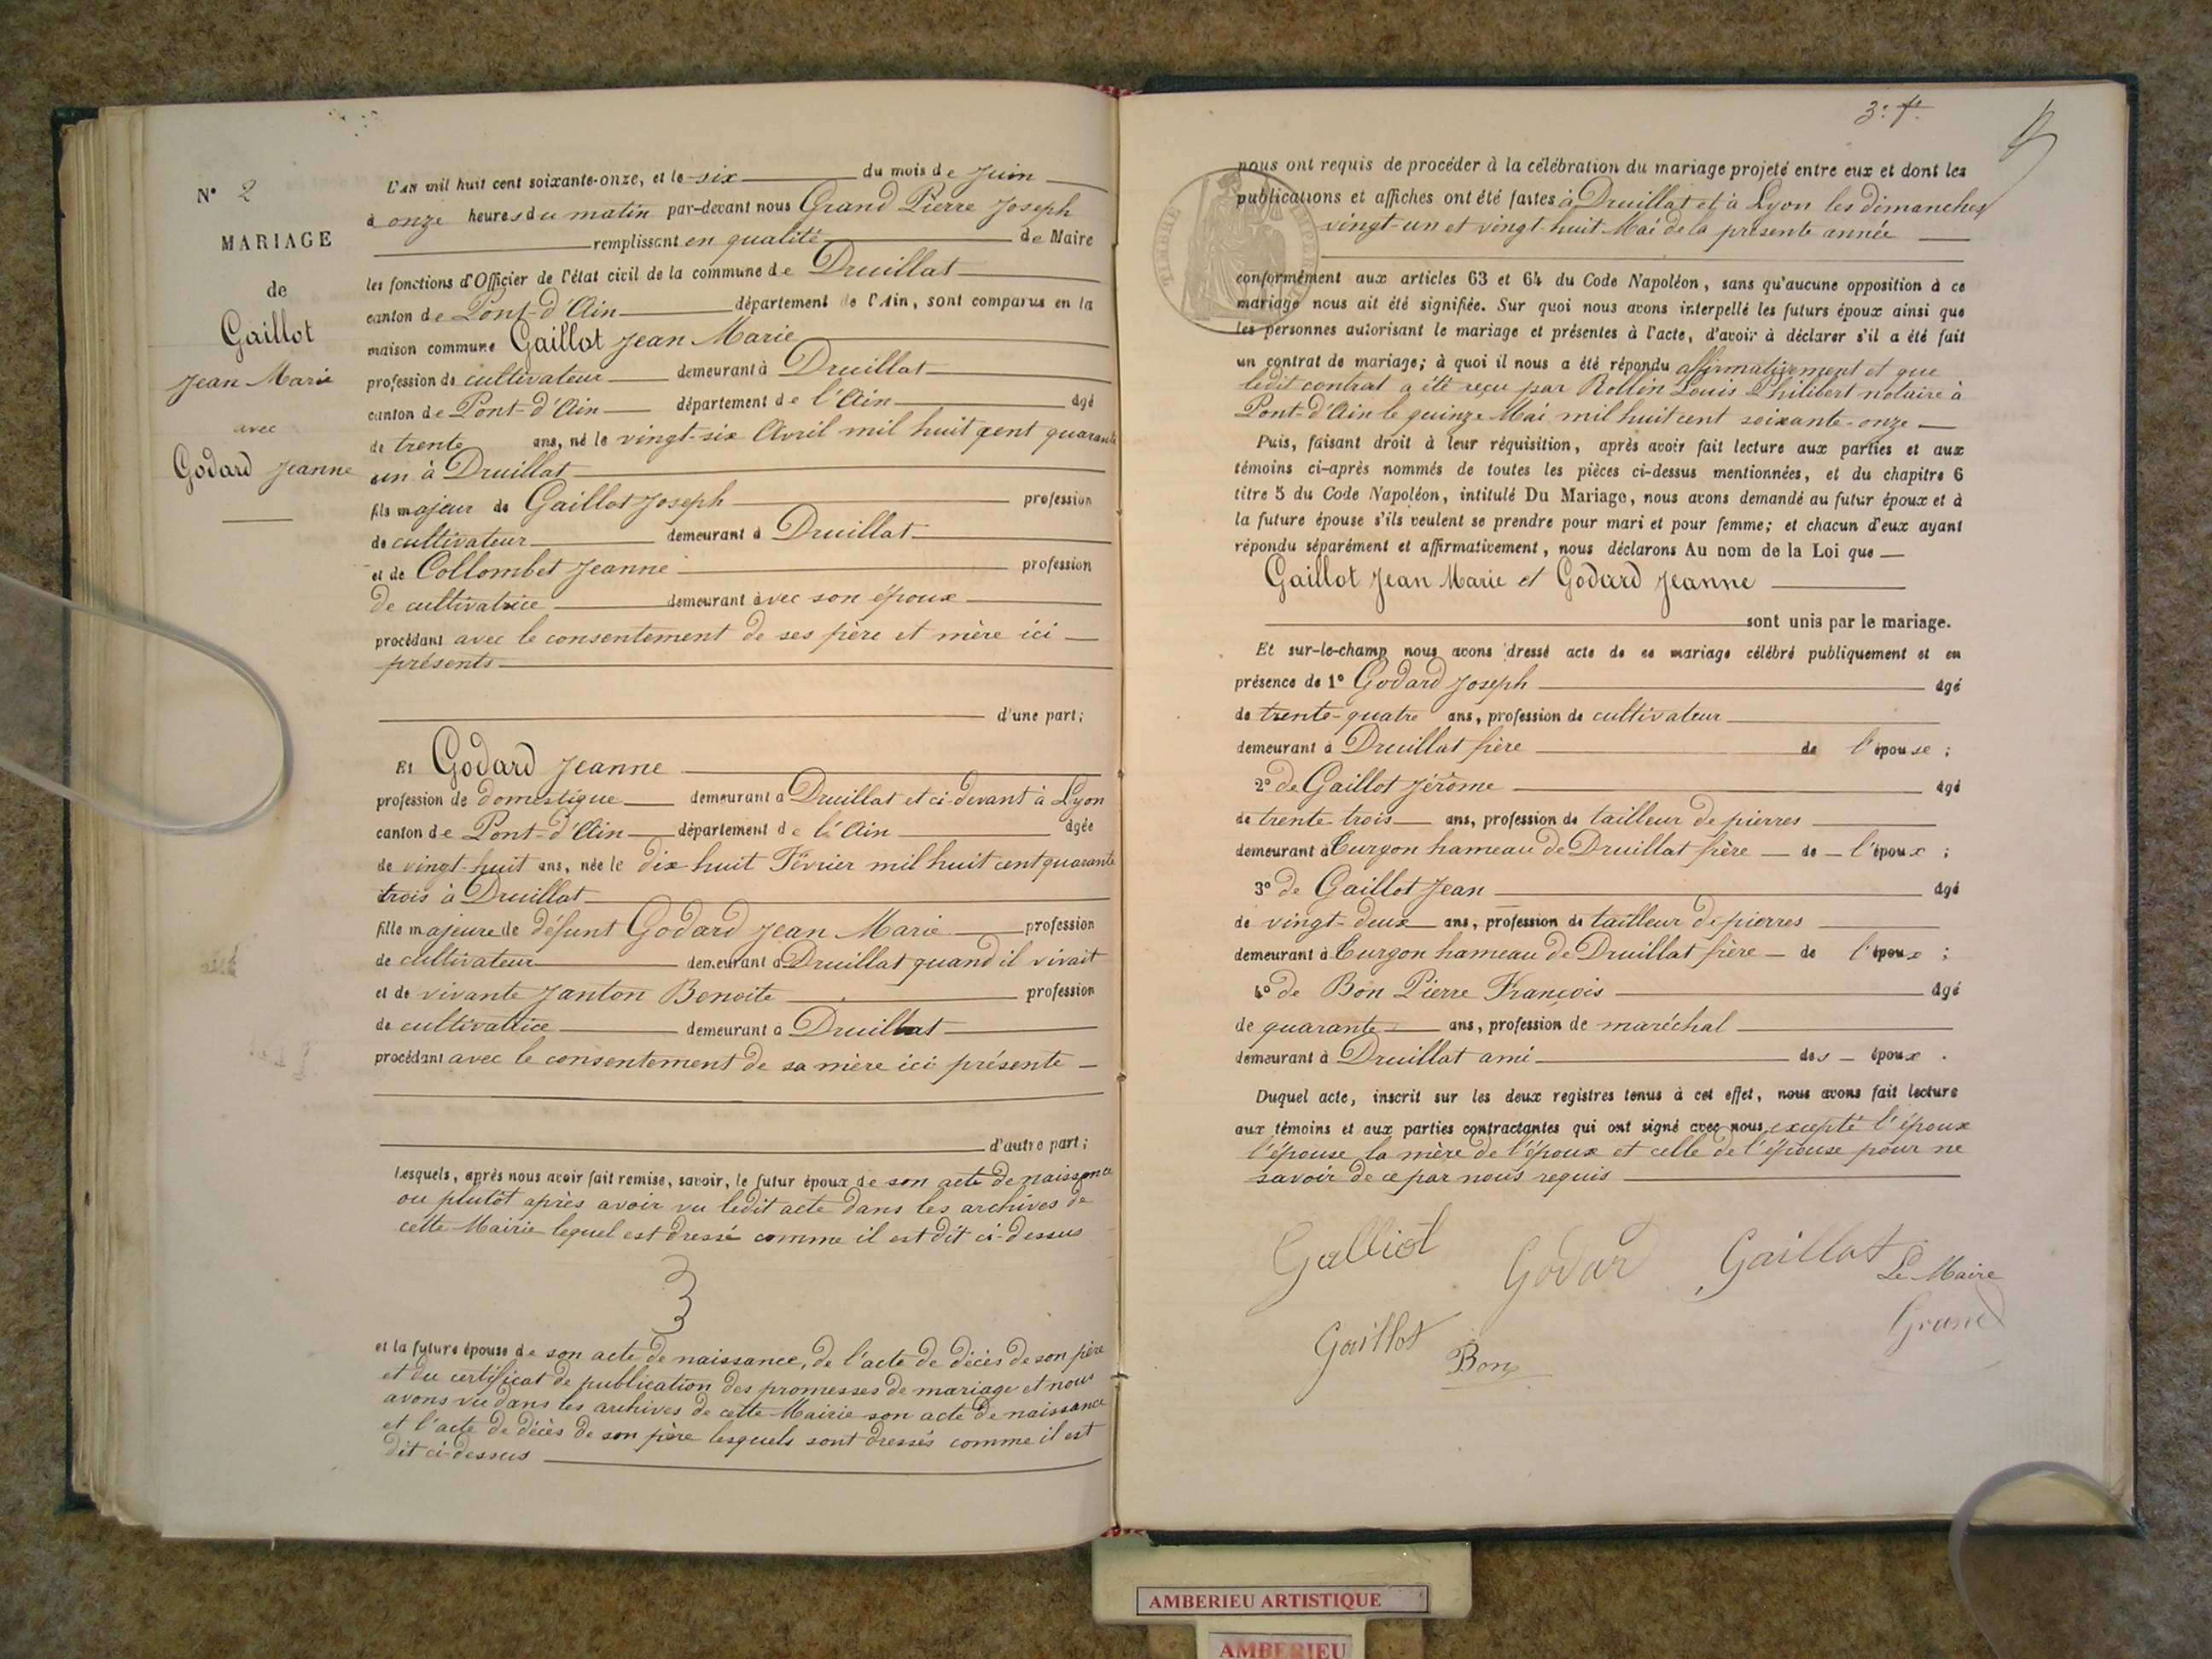 N° 2
MARIAGE
de
Gaillot
Jean Marie
avec
Godard Jeanne
L'an mil huit cent soixante-onze, et le six du mois de Juin
à onze heures du matin par-devant nous Grand Pierre Joseph
remplissant en qualité de Maire
les fonctions d'Officier de l'état civil de la commune de Druillat
canton de Pont-d'Ain département de l'Ain, sont comparus en la
maison commune Gaillot Jean Marie
profession de cultivateur demeurant à Druillat
canton de Pont-d'Ain département de l'Ain âgé
de trente ans, né le vingt-six Avril mil huit cent quarante
un à Druillat
fils majeur de Gaillot Joseph profession
de cultivateur demeurant à Druillat
et de Collombet Jeanne profession
de cultivatrice demeurant avec son époux
procédant avec le consentement de ses père et mère ici
présents
d'une part;
Et Godard Jeanne
profession de domestique demeurant à Druillat et ci-devant à Lyon
canton de Pont-d'Ain département de l'Ain âgée
de vingt-huit ans, née le dix-huit Février mil huit cent quarante
trois à Druillat
fille majeure de défunt Godard Jean Marie profession
de cultivateur demeurant à Druillat quand il vivait
et de vivante Janton Benoite profession
de cultivatrice demeurant à Druillat
procédant avec le consentement de sa mère ici présente
d'autre part;
Lesquels, après nous avoir fait remise, savoir, le futur époux de son acte de naissance
ou plutôt après avoir vu ledit acte dans les archives de
cette Mairie lequel est dressé comme il est dit ci-dessus
et la future épouse de son acte de naissance, de l'acte de décès de son père
et du certificat de publication des promesses de mariage et nous
avons vu dans les archives de cette Mairie son acte de naissance
et l'acte de décès de son père lesquels sont dressés comme il est
dit ci-dessus
3e f.
nous ont requis de procéder à la célébration du mariage projeté entre eux et dont les
publications et affiches ont été faites à Druillat et à Lyon les dimanches
vingt-un et vingt-huit Mai de la présente année
conformément aux articles 63 et 64 du Code Napoléon, sans qu'aucune opposition à ce
mariage nous ait été signifiée. Sur quoi nous avons interpellé les futurs époux ainsi que
les personnes autorisant le mariage et présentes à l'acte, d'avoir à déclarer s'il a été fait
un contrat de mariage; à quoi il nous a été répondu affirmativement et que
ledit contrat a été reçu par Rollin Louis Philibert notaire à
Pont-d'Ain le quinze Mai mil huit cent soixante-onze
Puis, faisant droit à leur réquisition, après avoir fait lecture aux parties et aux
témoins ci-après nommés de toutes les pièces ci-dessus mentionnées, et du chapitre 6
titre 5 du Code Napoléon, intitulé Du Mariage, nous avons demandé au futur époux et à
la future épouse s'ils veulent se prendre pour mari et pour femme; et chacun d'eux ayant
répondu séparément et affirmativement, nous déclarons Au nom de la Loi que
Gaillot Jean Marie et Godard Jeanne
sont unis par le mariage.
Et sur-le-champ nous avons dressé acte de ce mariage célébré publiquement et en
présence de 1° Godard Joseph âgé
de trente-quatre ans, profession de cultivateur
demeurant à Druillat frère de l'épouse;
2° de Gaillot Jérôme âgé
de trente-trois ans, profession de tailleur de pierres
demeurant à Turgon hameau de Druillat frère de l'époux;
3° de Gaillot Jean âgé
de vingt-deux ans, profession de tailleur de pierres
demeurant à Turgon hameau de Druillat frère de l'époux;
4° de Bon Pierre François âgé
de quarante ans, profession de maréchal
demeurant à Druillat ami des époux.
Duquel acte, inscrit sur les deux registres tenus à cet effet, nous avons fait lecture
aux témoins et aux parties contractantes qui ont signé avec nous excepté l'époux
l'épouse la mère de l'époux et celle de l'épouse pour ne
savoir de ce par nous requis
Galliot Godar Gaillot Le Maire
Grand
Gaillot Bon
AMBERIEU ARTISTIQUE
AMBERIEU